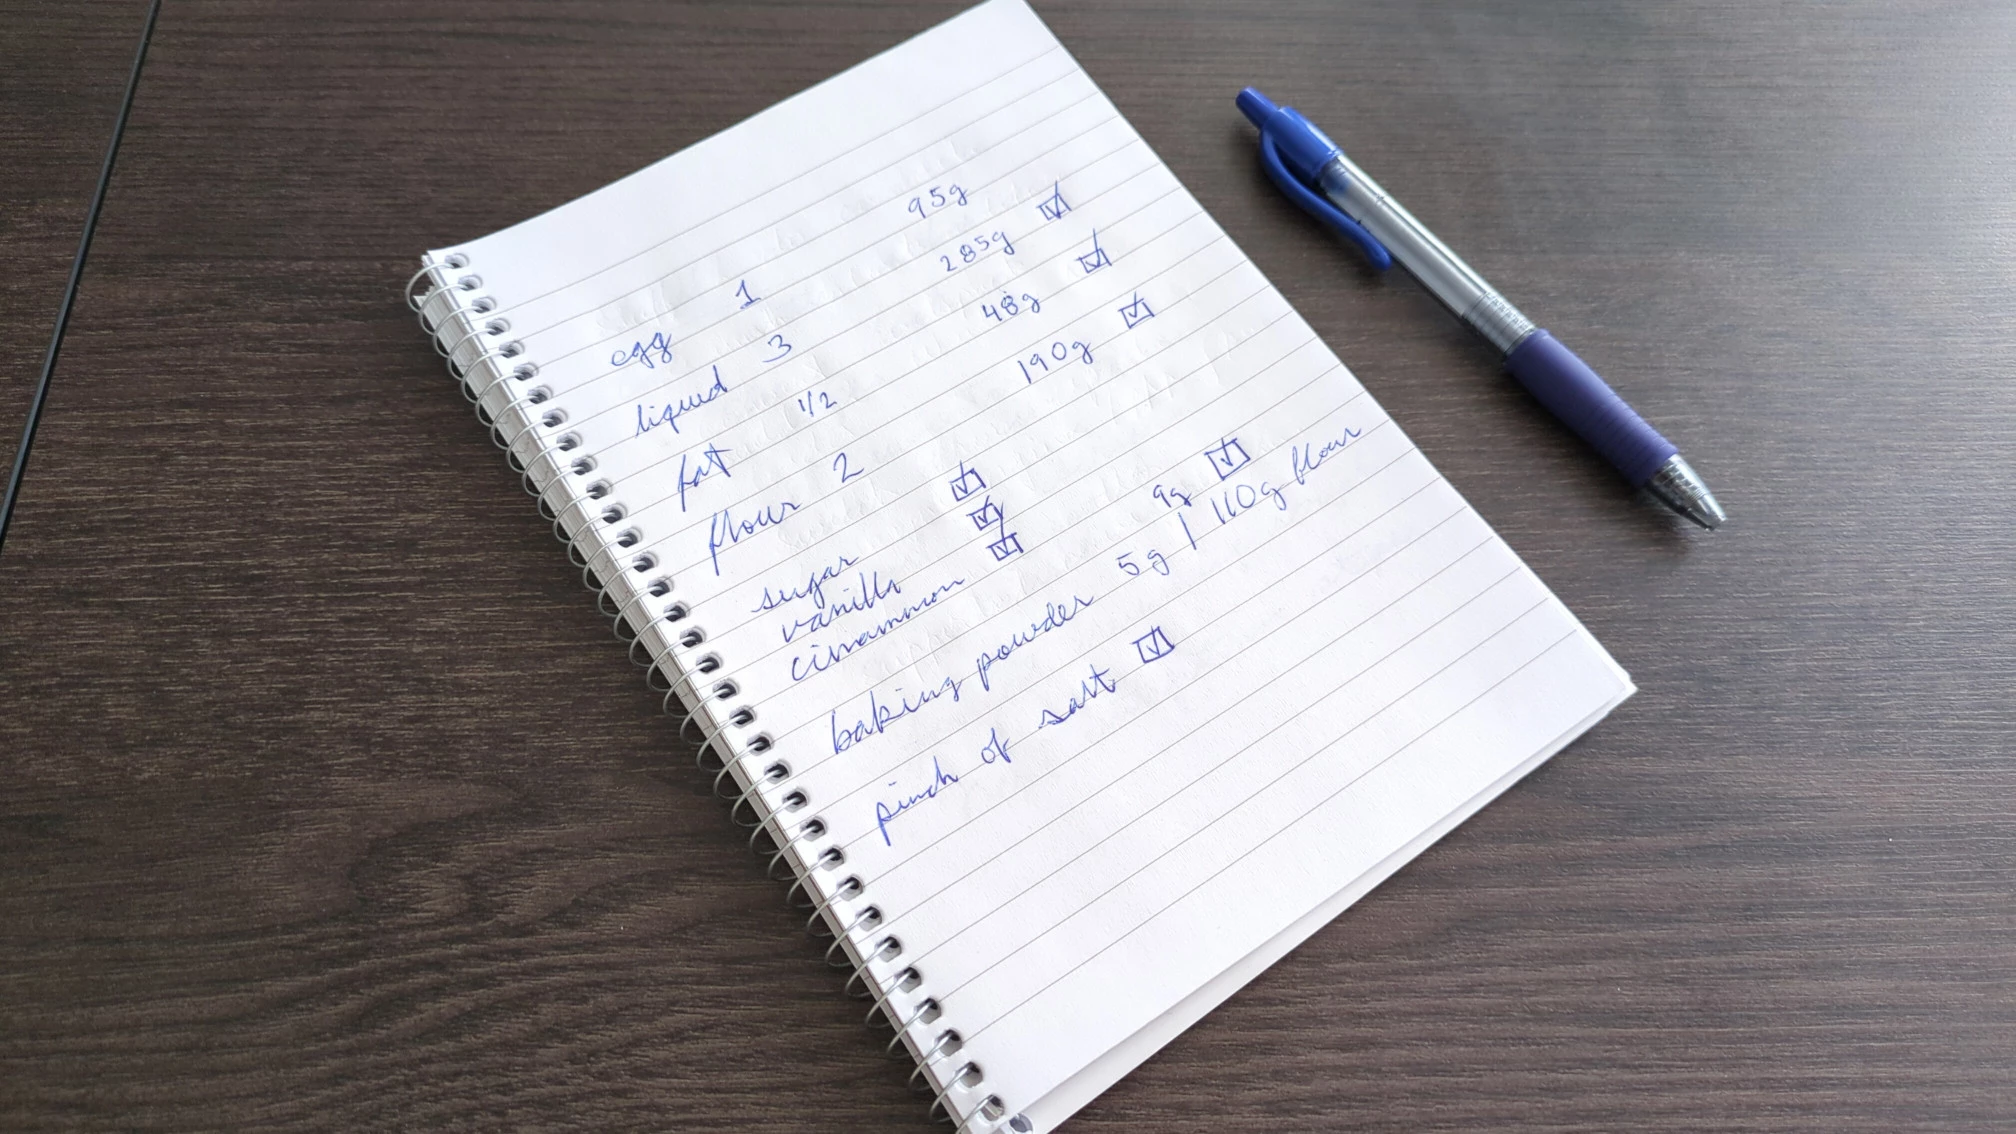 egg 1 95g
liquid 3 285g ☑
fat 1/2 48g ☑
flour 2 190g ☑
sugar ☑
vanilla ☑
cinammon ☑
9g ☑
baking powder 5g | 110g flour
pinch of salt ☑